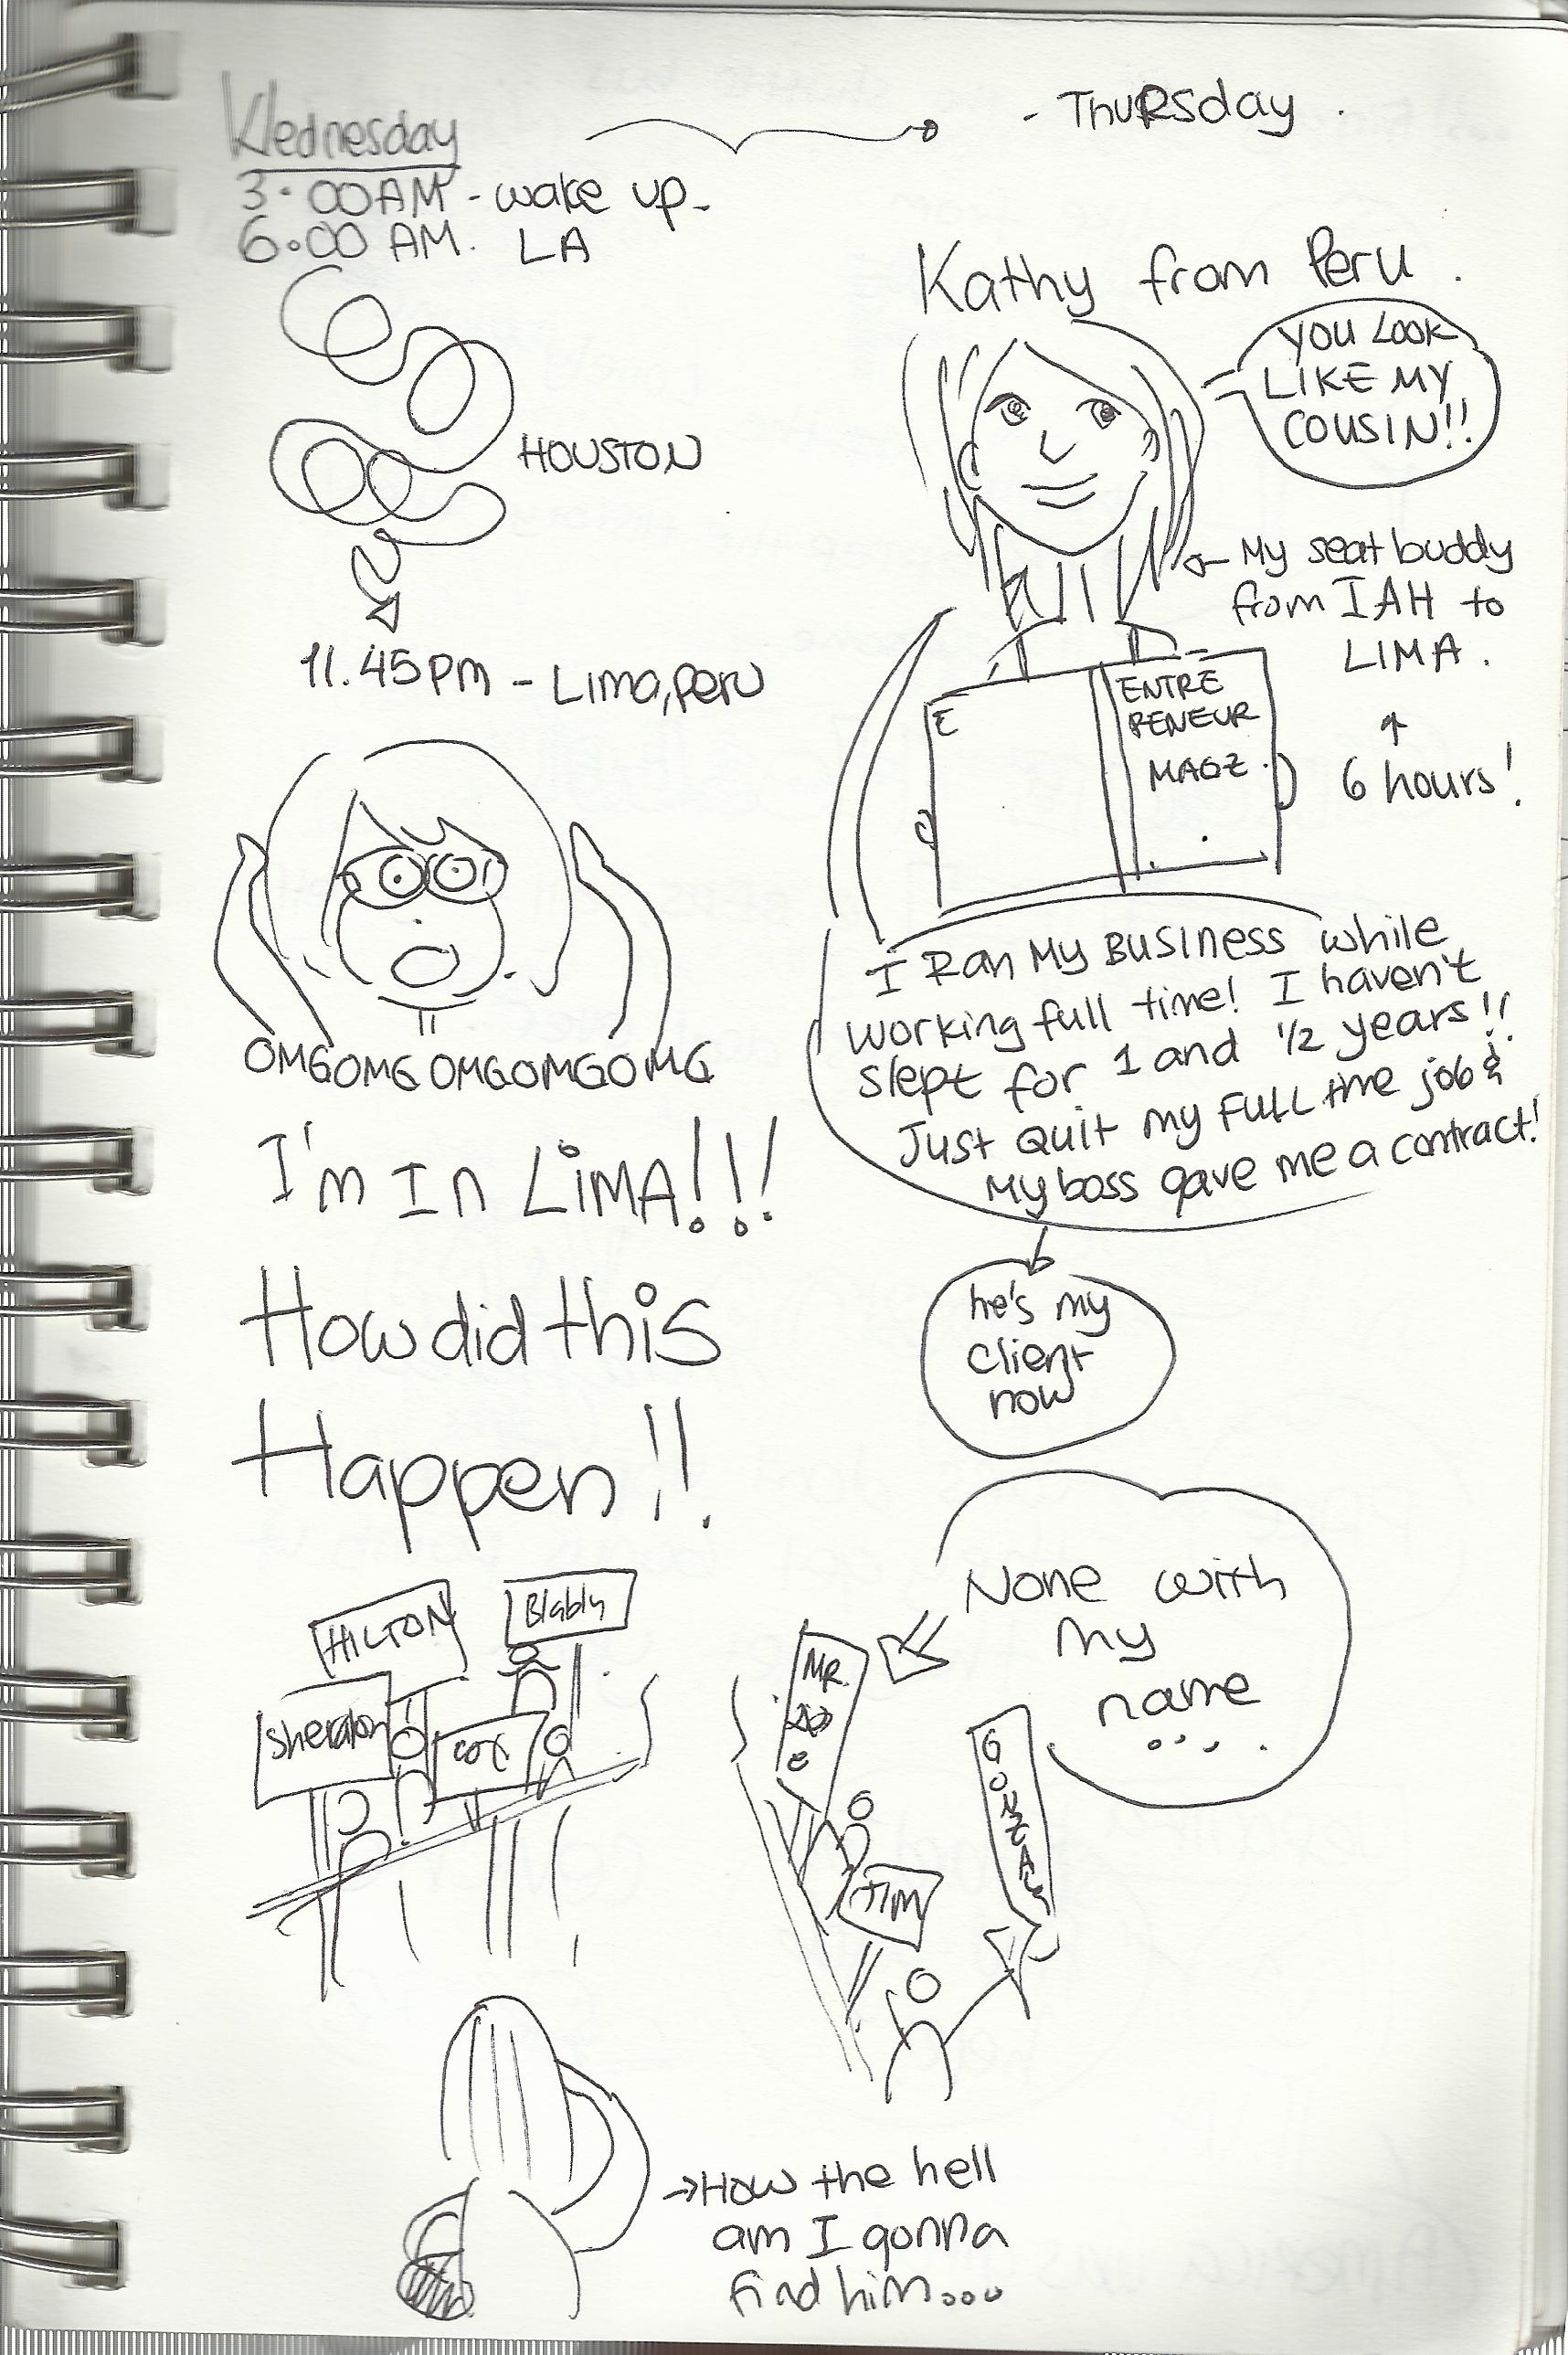 Wednesday
- Thursday.
3:00AM - wake up -
6:00 AM. LA
HOUSTON
11.45pm - Lima, Peru
OMGOMGOMGOMGOMG
I'm In LiMA!!!
How did this
Happen!!
Kathy from Peru.
YOU LOOK
LIKE MY
COUSIN!!
My seat buddy
from IAH to
LIMA.
6 hours!
E
ENTRE
PENEUR
MAGZ.
I Ran My BUSINESS while
working full time! I haven't
slept for 1 and 1/2 years!!
Just quit my FULL time job &
My boss gave me a contract!
he's my
client
now
HILTON
Blably
Sheraton
None with
my
name
....
MR.
GONZALS
TIM
→How the hell
am I gonna
find him...